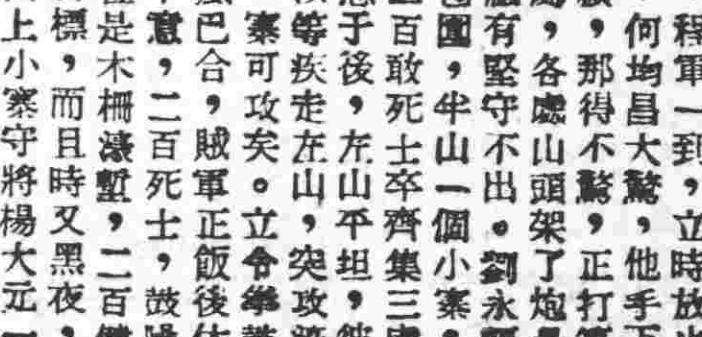 程軍一到，立時放
何均昌大驚，他手下
，那得不驚，正打
，各處山頭架了炮
有堅守不出。劉永
圍，半山一個小寨，
百敢死士卒齊集三
于後，左山平坦，彼
等疾走左山，突攻
寨可攻矣。立令
巴合，賊軍正飯後休
意，二百死士，鼓
是木柵濠塹，二百
標，而且時又黑夜，
上小寨守將楊大元一